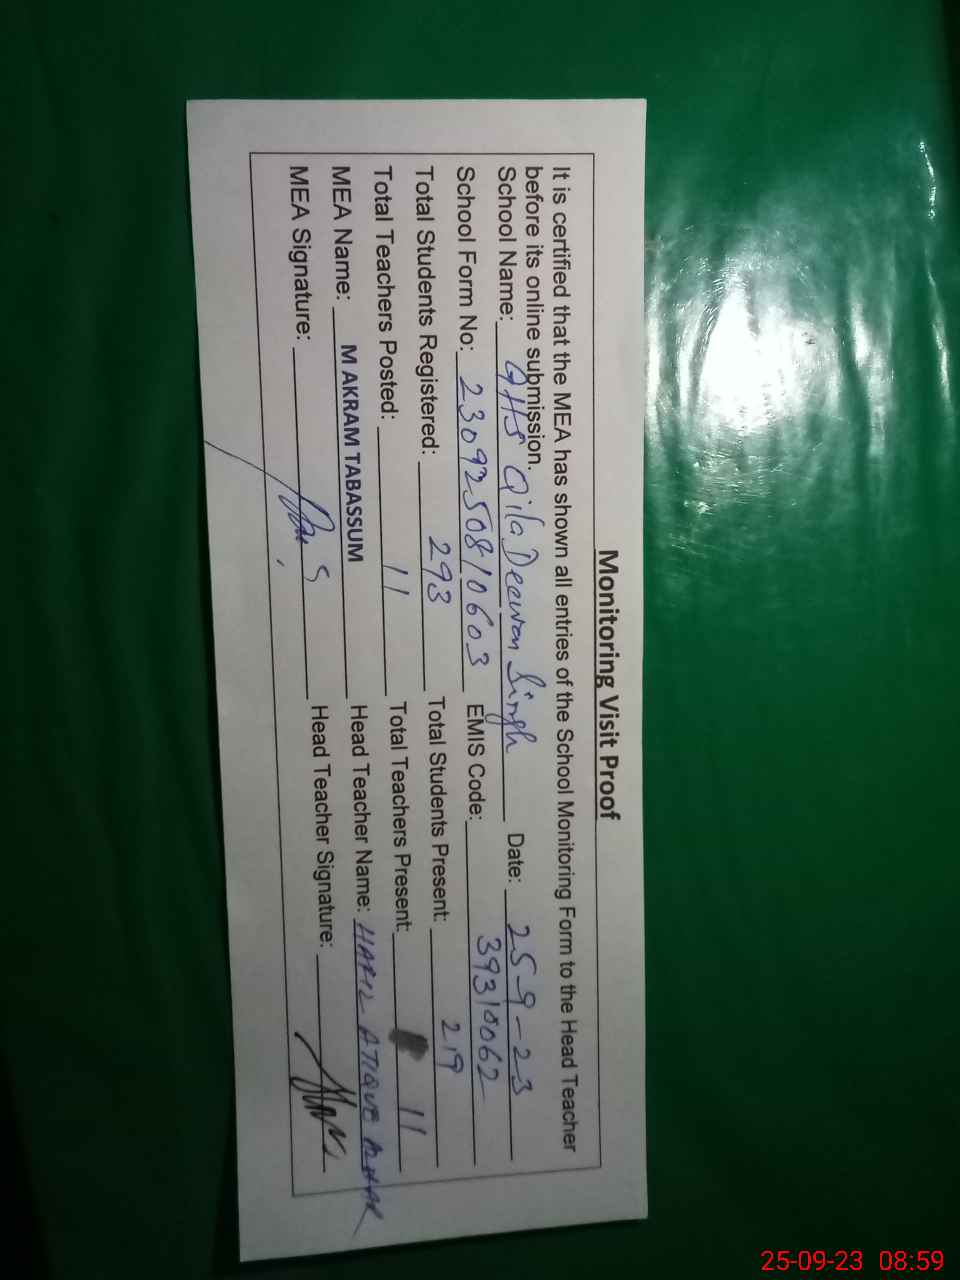 Monitoring Visit Proof
It is certified that the MEA has shown all entries of the School Monitoring Form to the Head Teacher
before its online submission.
School Name: GHS Qila Deewan Singh Date: 25-9-23
School Form No: 2309250810603 EMIS Code: 39310062
Total Students Registered: 293 Total Students Present: 219
Total Teachers Posted: 11 Total Teachers Present: 11
MEA Name: M AKRAM TABASSUM Head Teacher Name: HAFIZ ATIQUE
MEA Signature: Head Teacher Signature:
25-09-23 08:59